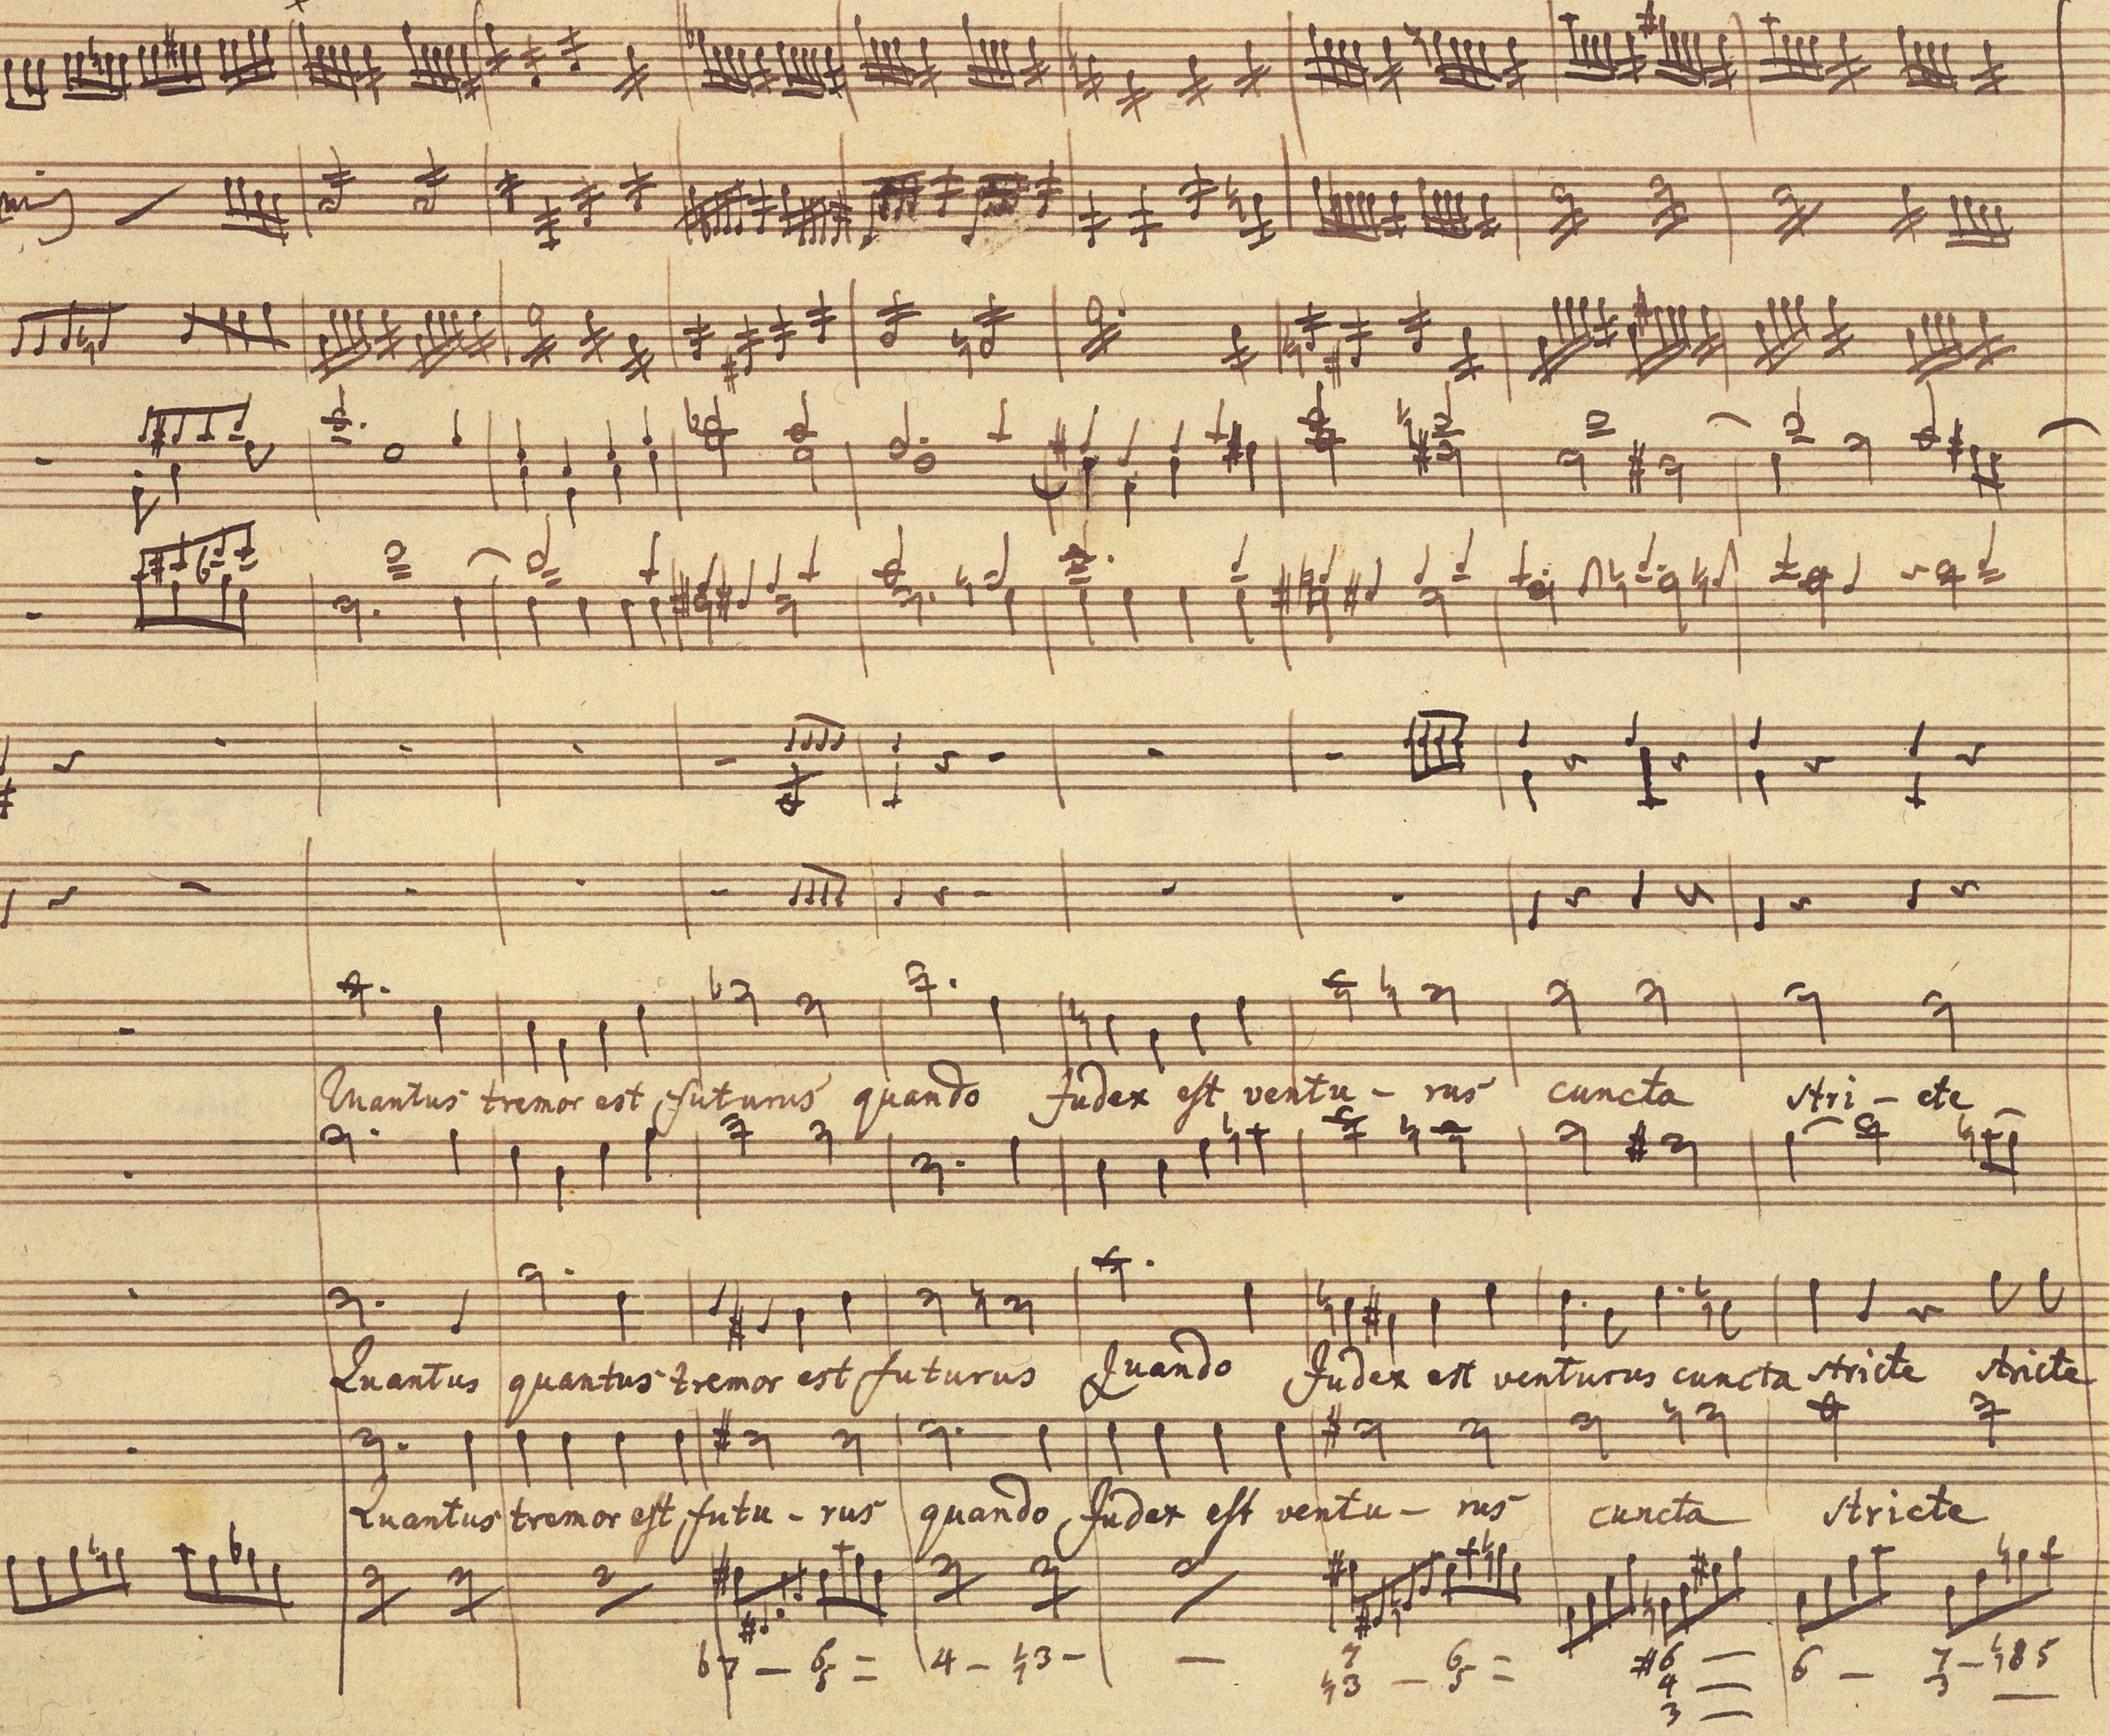 Quantus tremor est futurus quando Judex est ventu - rus cuncta stri - cte
Quantus quantus tremor est futurus Quando Judex est venturus cuncta stricte stricte
Quantus tremor est futu - rus quando Judex est ventu - rus cuncta stricte